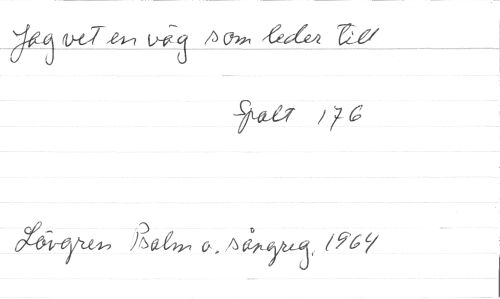 Jag vet en väg som leder till
Spalt 176
Lövgren Psalm o. sångreg. 1964